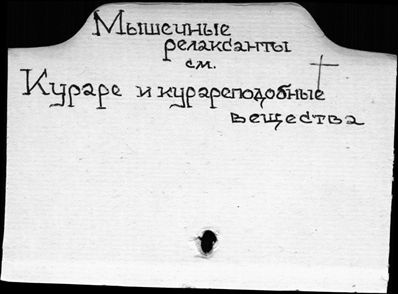 Мышечные
релаксанты
см.
Кураре и курареподобные
вещества